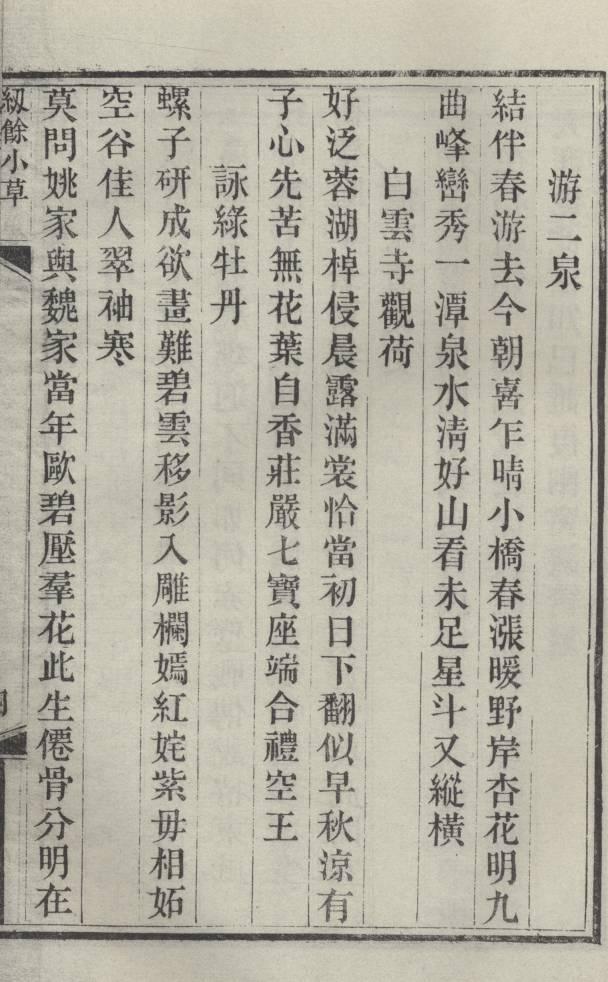 游二泉
結伴春游去今朝喜乍晴小橋春漲暖野岸杏花明九
曲峰巒秀一潭泉水淸好山看未足星斗又縱橫
白雲寺觀荷
好泛蓉湖棹侵晨露滿裳恰當初日下翻似早秋涼有
子心先苦無花葉自香莊嚴七寶座端合禮空王
詠綠牡丹
螺子研成欲畫難碧雲移影入雕欄嫣紅姹紫毋相妬
空谷佳人翠袖寒
莫問姚家與魏家當年歐碧壓羣花此生僊骨分明在
紉餘小草